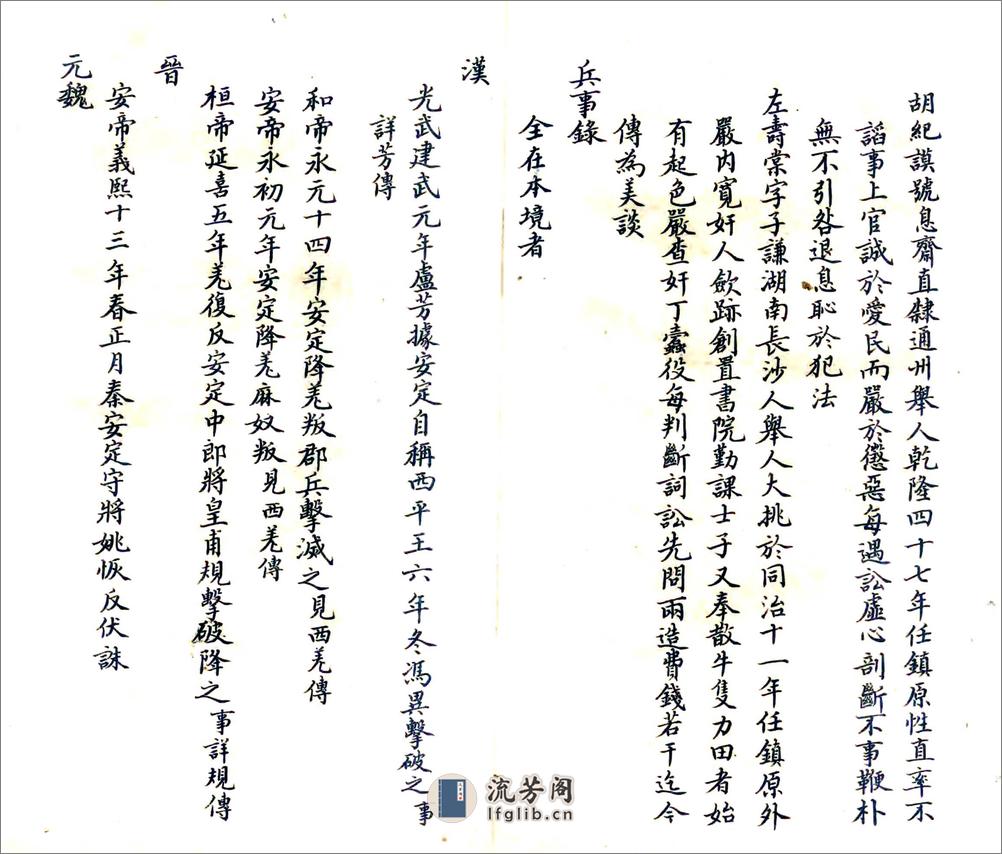 胡紀謨號息齋直隸通州舉人乾隆四十七年任鎮原性直率不
謟事上官誠於愛民而嚴於懲惡每遇訟虛心剖斷不事鞭朴
無不引咎退息恥於犯法
左壽棠字子謙湖南長沙人舉人大挑於同治十一年任鎮原外
嚴內寬奸人歛跡創置書院勤課士子又奉散牛隻力田者始
有起色嚴查奸丁蠹役每判斷詞訟先問兩造費錢若干迄今
傳為美談
兵事錄
全在本境者
漢
光武建武元年盧芳據安定自稱西平王六年冬馮異擊破之事
詳芳傳
和帝永元十四年安定降羌叛郡兵擊滅之見西羌傳
安帝永初元年安定降羌麻奴叛見西羌傳
桓帝延喜五年羌復反安定中郎將皇甫規擊破降之事詳規傳
晉
安帝義熙十三年春正月秦安定守將姚恢反伏誅
元魏
流芳阁
lfglib.cn